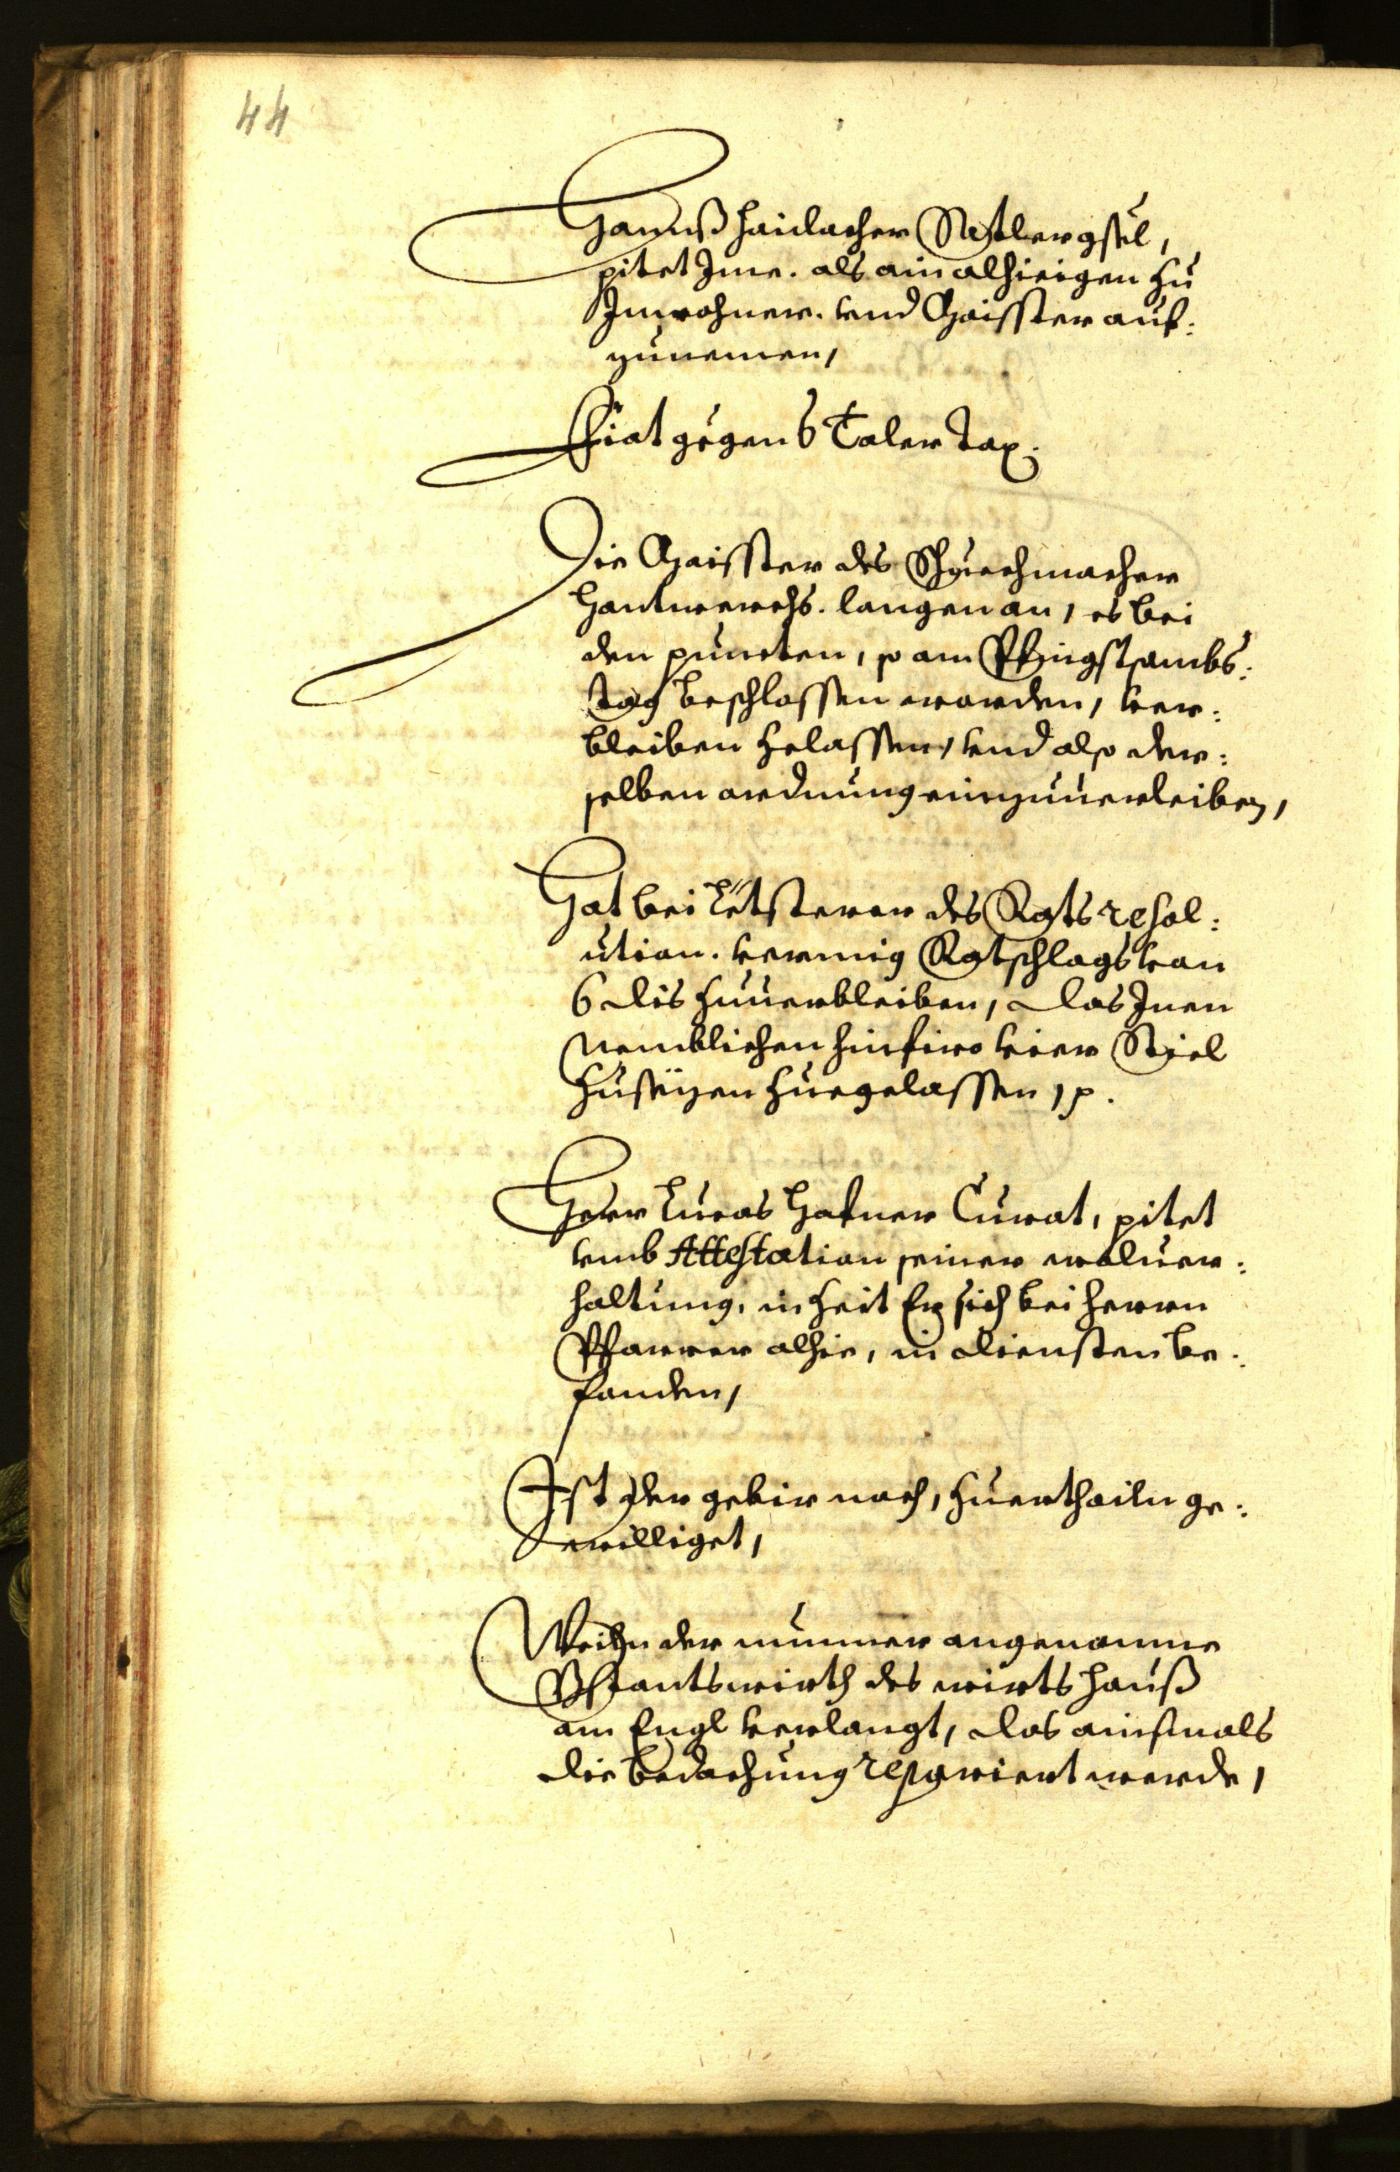 44
Hannß Haidacher Satlergsöl,
pitet Ine. als ain alhieigen zu
Inwohner. vnd Maisster auf:
zunemen,
Fiat gegen 6 Taler Tax.
Die Maisster des Schuechmacher
Hantwerchs. langen an, es bei
den puncten, so am Pfingstsambs:
tag beschlossen worden, ver:
bleiben zelassen, vnd also der:
selben ordnung einzuuerleiben,
Hat bei letsterer des Rats resol:
ution. vermig Ratschlags von
6 dis zuuerbleiben, das Inen
nemblichen hinfiro vier Stiel
zusezen zuegelassen, p.
Herr Lucas Hafner Curat, pitet
vmb Attestation seiner woluer:
haltung, in Zeit Er sich bei Herrn
Pfarrer alhie, in diensten be:
fonden,
Ist der gebir nach, zuerthailn ge:
williget,
Weiln der nunmer angenomne
Bstantswirth des wirtshauß
am Engl verlangt, das ainsmals
die bedachung repariert werde,